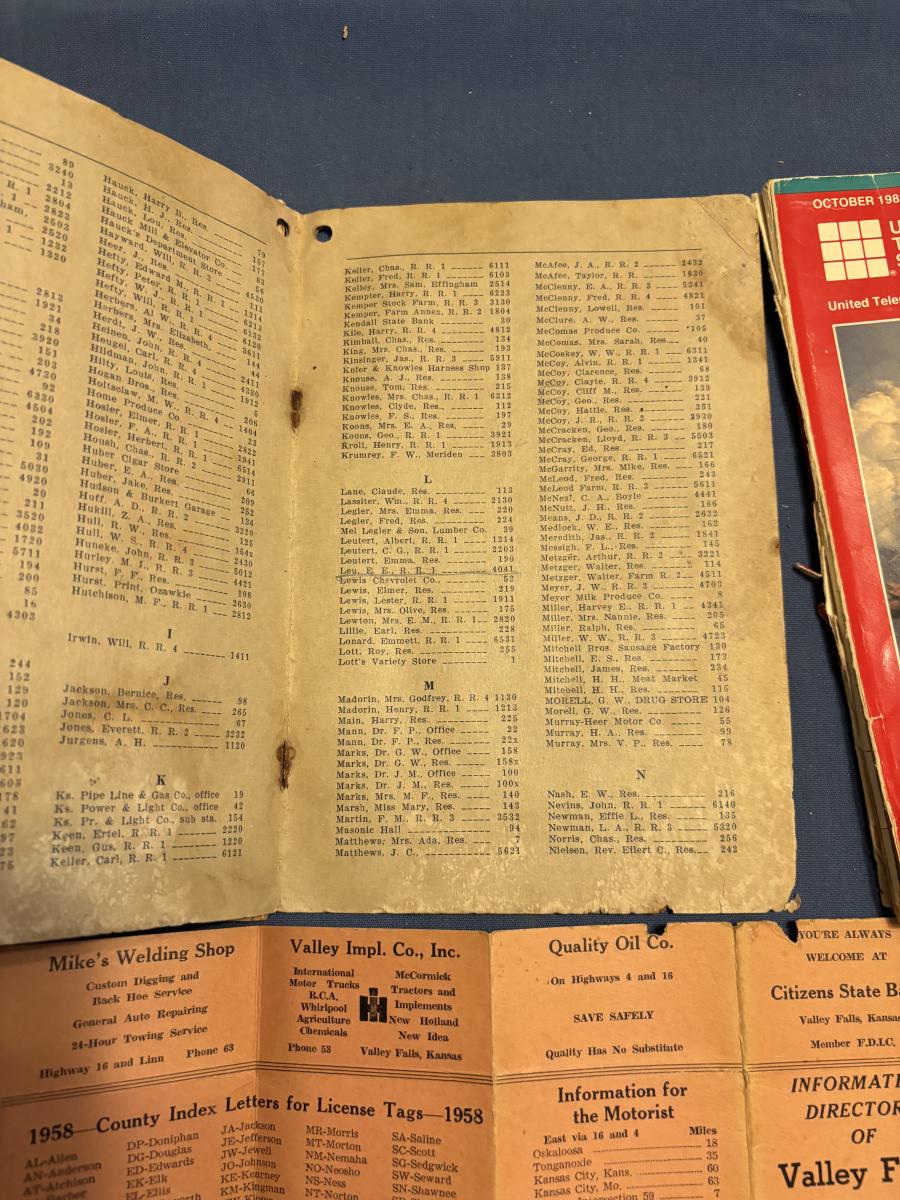 89
3240
13
R. 1 2212
2804
ham, 2823
2503
2520
1 1232
1320
2813
1921
34
218
3920
151
203
4730
92
6330
4504
202
192
109
31
5030
4920
20
211
3520
4032
1720
5711
194
200
85
16
4303
244
152
129
120
1704
623
620
923
611
603
178
41
62
97
73
75
Hauck, Harry B., Res.
Hauck, H. J., Res. 79
Hauck, Lou, Res. 157
Hauck Mill & Elevator Co. 177
Hauck's Department Store 83
Hayward, Will, R. R. 3 4530
Heer, J., Res. 56
Hefty, Edward M., R. R. 1
Hefty, Peter, R. R. 1
Hefty, W. J., R. R. 1
Hefty, Will, R. R. 1
Herbers, Al W., R. R. 4
Herbers, Mrs. Elizabeth,
Herdt, J. W., Res.
Heinen, John, R. R. 4
Heugel, Carl, R. R. 4
Hildman, John, R. R. 1
Hilty, Louis, Res.
Hogan Bros., Res.
Holtsclaw, M. W., R. R. 4
Home Produce Co. 206
Hosler, Elmer, R. R. 1 1404
Hosler, F. A., R. R. 1
Hosler, Herbert, R. R. 1
Housh, Chas., R. R. 2
Huber Cigar Store
Huber, E. A., Res.
Huber, Jake, Res.
Hudson & Burket Garage 252
Huff, A. D., R. R. 2
Hukill, Z. A., Res.
Hull, R. W., Res. 125
Hull, W. S., R. R. 4 154x
Huneke, John, R. R. 3 2430
Hurley, M. J., R. R. 3 5012
Hurst, F. F., Res. 4421
Hurst, Print, Ozawkie 108
Hutchison, M. F., R. R. 1 2630
2812
I
Irwin, Will, R. R. 4 1411
J
Jackson, Bernice, Res. 98
Jackson, Mrs. C. C., Res. 265
Jones, C. L. 67
Jones, Everett, R. R. 2 3232
Jurgens, A. H. 1120
K
Ks. Pipe Line & Gas Co., office 19
Ks. Power & Light Co., office 42
Ks. Pr. & Light Co., sub sta. 154
Keen, Ertel, R. R. 1 2220
Keen, Gus, R. R. 1 1220
Keller, Carl, R. R. 1 6121
Keller, Chas., R. R. 1 6111
Keller, Fred, R. R. 1 6103
Kelley, Mrs. Sam, Effingham 2514
Kempter, Harry, R. R. 1 6223
Kemper Stock Farm, R. R. 3 3130
Kemper, Farm Annex, R. R. 2 1804
Kendall State Bank 30
Kile, Harry, R. R. 4 4812
Kimball, Chas., Res. 134
King, Mrs. Chas., Res. 193
Kinsinger, Jas., R. R. 3 5911
Knier & Knowles Harness Shop 137
Knouse, A. J., Res. 138
Knouse, Tom, Res. 215
Knowles, Mrs. Chas., R. R. 1 6312
Knowles, Clyde, Res. 112
Knowles, F. S., Res. 197
Koons, Mrs. E. A., Res. 29
Koons, Geo., R. R. 1 3921
Kroll, Henry, R. R. 1 1913
Krumrey, F. W., Meriden 3803
L
Lane, Claude, Res. 113
Lassiter, Wm., R. R. 4 2130
Legler, Mrs. Emma, Res. 220
Legler, Fred, Res. 224
Mel Legler & Son, Lumber Co. 39
Leutert, Albert, R. R. 1 1214
Leutert, C. G., R. R. 1 2203
Leutert, Emma, Res. 190
Leu, E. E., R. R. 1 4041
Lewis Chevrolet Co., 52
Lewis, Elmer, Res. 219
Lewis, Lester, R. R. 1 1911
Lewis, Mrs. Olive, Res. 175
Lewton, Mrs. E. M., R. R. 1 2820
Lillie, Earl, Res. 228
Lonard, Emmett, R. R. 1 6531
Lott, Roy, Res. 255
Lott's Variety Store 1
M
Madorin, Mrs. Godfrey, R. R. 4 1130
Madorin, Henry, R. R. 1 1213
Main, Harry, Res. 225
Mann, Dr. F. P., Office 22
Mann, Dr. F. P., Res. 22x
Marks, Dr. G. W., Office 158
Marks, Dr. G. W., Res. 158x
Marks, Dr. J. M., Office 100
Marks, Dr. J. M., Res. 100x
Marks, Mrs. M. F., Res. 140
Marsh, Miss Mary, Res. 143
Martin, F. M., R. R. 3 3532
Masonic Hall 94
Matthews, Mrs. Ada, Res. 7
Matthews, J. C., 5621
McAfee, J. A., R. R. 2 2432
McAfee, Taylor, R. R. 1830
McClenny, E. A., R. R. 3 5341
McClenny, Fred, R. R. 4 4821
McClenny, Lowell, Res. 101
McClure, A. W., Res. 37
McComas Produce Co. 105
McComas, Mrs. Sarah, Res. 40
McCoskey, W. W., R. R. 1 6311
McCoy, Alvin, R. R. 1 1341
McCoy, Clarence, Res. 68
McCoy, Clayte, R. R. 4 3912
McCoy, Cliff M., Res. 139
McCoy, Geo., Res. 221
McCoy, Hattie, Res. 251
McCoy, J. R., R. R. 2 2930
McCracken, Geo., Res. 180
McCracken, Lloyd, R. R. 3 5503
McCray, Ed, Res. 217
McCray, George, R. R. 1 6521
McGarrity, Mrs. Mike, Res. 166
McLeod, Fred, Res. 243
McLeod Farm, R. R. 3 5611
McNeal, C. A., Boyle 4441
McNutt, J. H., Res. 186
Means, J. D., R. R. 2 2632
Medlock, W. E., Res. 162
Meredith, Jas., R. R. 2 1841
Messigh, F. L., Res. 145
Metzger, Arthur, R. R. 2 3221
Metzger, Walter, Res. 114
Metzger, Walter, Farm R. 2 4511
Meyer, J. W., R. R. 3 4703
Meyer Milk Produce Co. 8
Miller, Harvey E., R. R. 1 4341
Miller, Mrs. Nannie, Res. 205
Miller, Ralph, Res. 65
Miller, W. W., R. R. 3 4723
Mitchell Bros. Sausage Factory 130
Mitchell, E. S., Res. 173
Mitchell, James, Res. 234
Mitchell, H. H., Meat Market 45
Mitchell, H. H., Res. 115
MORELL, G. W., DRUG STORE 104
Morell, G. W., Res. 126
Murray-Heer Motor Co. 55
Murray, H. A., Res. 99
Murray, Mrs. V. P., Res. 78
N
Nash, E. W., Res. 216
Nevins, John, R. R. 1 6140
Newman, Effie L., Res. 135
Newman, L. A., R. R. 3 5320
Norris, Chas., Res. 256
Nielsen, Rev. Eilert C., Res. 242
OCTOBER 198
United Tele
Mike's Welding Shop
Custom Digging and
Back Hoe Service
General Auto Repairing
24-Hour Towing Service
Highway 16 and Linn Phone 63
Valley Impl. Co., Inc.
International
Motor Trucks
R.C.A.
Whirlpool
Agriculture
Chemicals
Phone 53
McCormick
Tractors and
Implements
New Holland
New Idea
Valley Falls, Kansas
Quality Oil Co.
On Highways 4 and 16
SAVE SAFELY
Quality Has No Substitute
YOU'RE ALWAYS
WELCOME AT
Citizens State Ba
Valley Falls, Kansas
Member F.D.I.C.
1958—County Index Letters for License Tags—1958
AL-Allen
AN-Anderson
AT-Atchison
DP-Doniphan
DG-Douglas
ED-Edwards
EK-Elk
EL-Ellis
JA-Jackson
JE-Jefferson
JW-Jewell
JO-Johnson
KE-Kearney
KM-Kingman
MR-Morris
MT-Morton
NM-Nemaha
NO-Neosho
NS-Ness
NT-Norton
SA-Saline
SC-Scott
SG-Sedgwick
SW-Seward
SN-Shawnee
Information for
the Motorist
East via 16 and 4 Miles
Oskaloosa 18
Tonganoxie 35
Kansas City, Kans. 60
Kansas City, Mo. 63
Intersection 59 7
INFORMATI
DIRECTOR
OF
Valley F